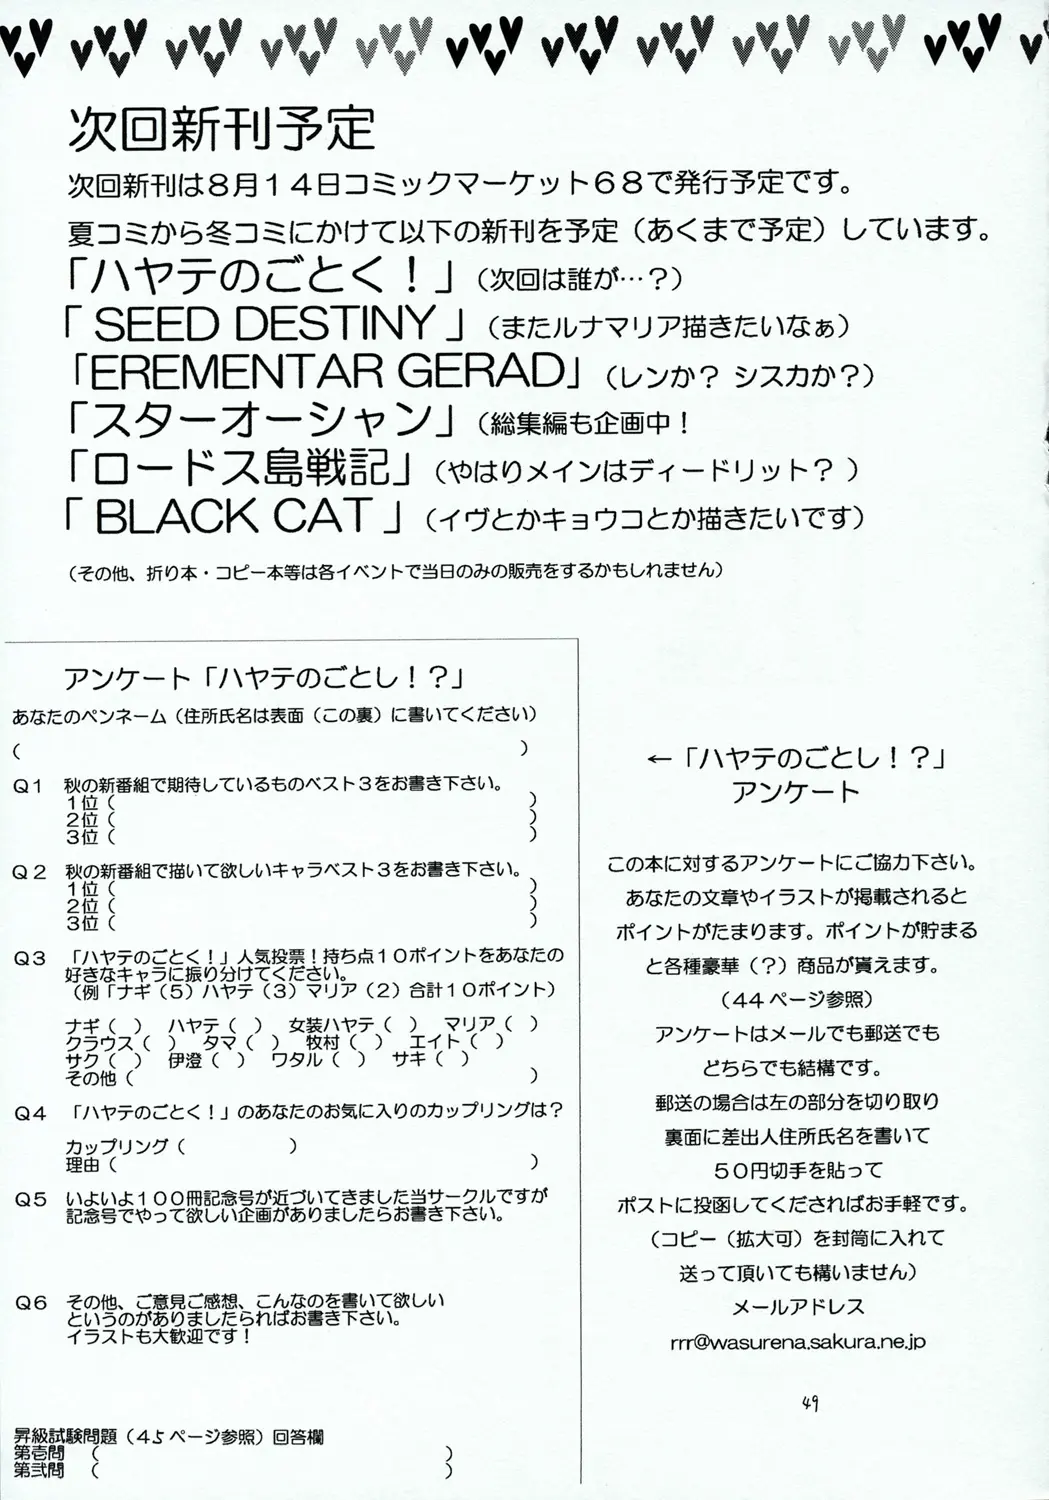 次回新刊予定
次回新刊は8月14日コミックマーケット68で発行予定です。
夏コミから冬コミにかけて以下の新刊を予定（あくまで予定）しています。
「ハヤテのごとく！」（次回は誰が…？）
「 SEED DESTINY 」（またルナマリア描きたいなぁ）
「EREMENTAR GERAD」（レンか？ シスカか？）
「スターオーシャン」（総集編も企画中！
「ロードス島戦記」（やはりメインはディードリット？ ）
「 BLACK CAT 」（イヴとかキョウコとか描きたいです）
（その他、折り本・コピー本等は各イベントで当日のみの販売をするかもしれません）
アンケート「ハヤテのごとし！？」
あなたのペンネーム（住所氏名は表面（この裏）に書いてください）
（ ）
Q1 秋の新番組で期待しているものベスト3をお書き下さい。
1位（ ）
2位（ ）
3位（ ）
Q2 秋の新番組で描いて欲しいキャラベスト3をお書き下さい。
1位（ ）
2位（ ）
3位（ ）
Q3 「ハヤテのごとく！」人気投票！持ち点10ポイントをあなたの
好きなキャラに振り分けてください。
（例「ナギ（5）ハヤテ（3）マリア（2）合計10ポイント）
ナギ（ ） ハヤテ（ ） 女装ハヤテ（ ） マリア（ ）
クラウス（ ） タマ（ ） 牧村（ ） エイト（ ）
サク（ ） 伊澄（ ） ワタル（ ） サキ（ ）
その他（ ）
Q4 「ハヤテのごとく！」のあなたのお気に入りのカップリングは？
カップリング（ ）
理由（ ）
Q5 いよいよ100冊記念号が近づいてきました当サークルですが
記念号でやって欲しい企画がありましたらお書き下さい。
Q6 その他、ご意見ご感想、こんなのを書いて欲しい
というのがありましたらればお書き下さい。
イラストも大歓迎です！
昇級試験問題（45ページ参照）回答欄
第壱問 （ ）
第弐問 （ ）
←「ハヤテのごとし！？」
アンケート
この本に対するアンケートにご協力下さい。
あなたの文章やイラストが掲載されると
ポイントがたまります。ポイントが貯まる
と各種豪華（？）商品が貰えます。
（44ページ参照）
アンケートはメールでも郵送でも
どちらでも結構です。
郵送の場合は左の部分を切り取り
裏面に差出人住所氏名を書いて
50円切手を貼って
ポストに投函してくださればお手軽です。
（コピー（拡大可）を封筒に入れて
送って頂いても構いません）
メールアドレス
rrr@wasurena.sakura.ne.jp
49